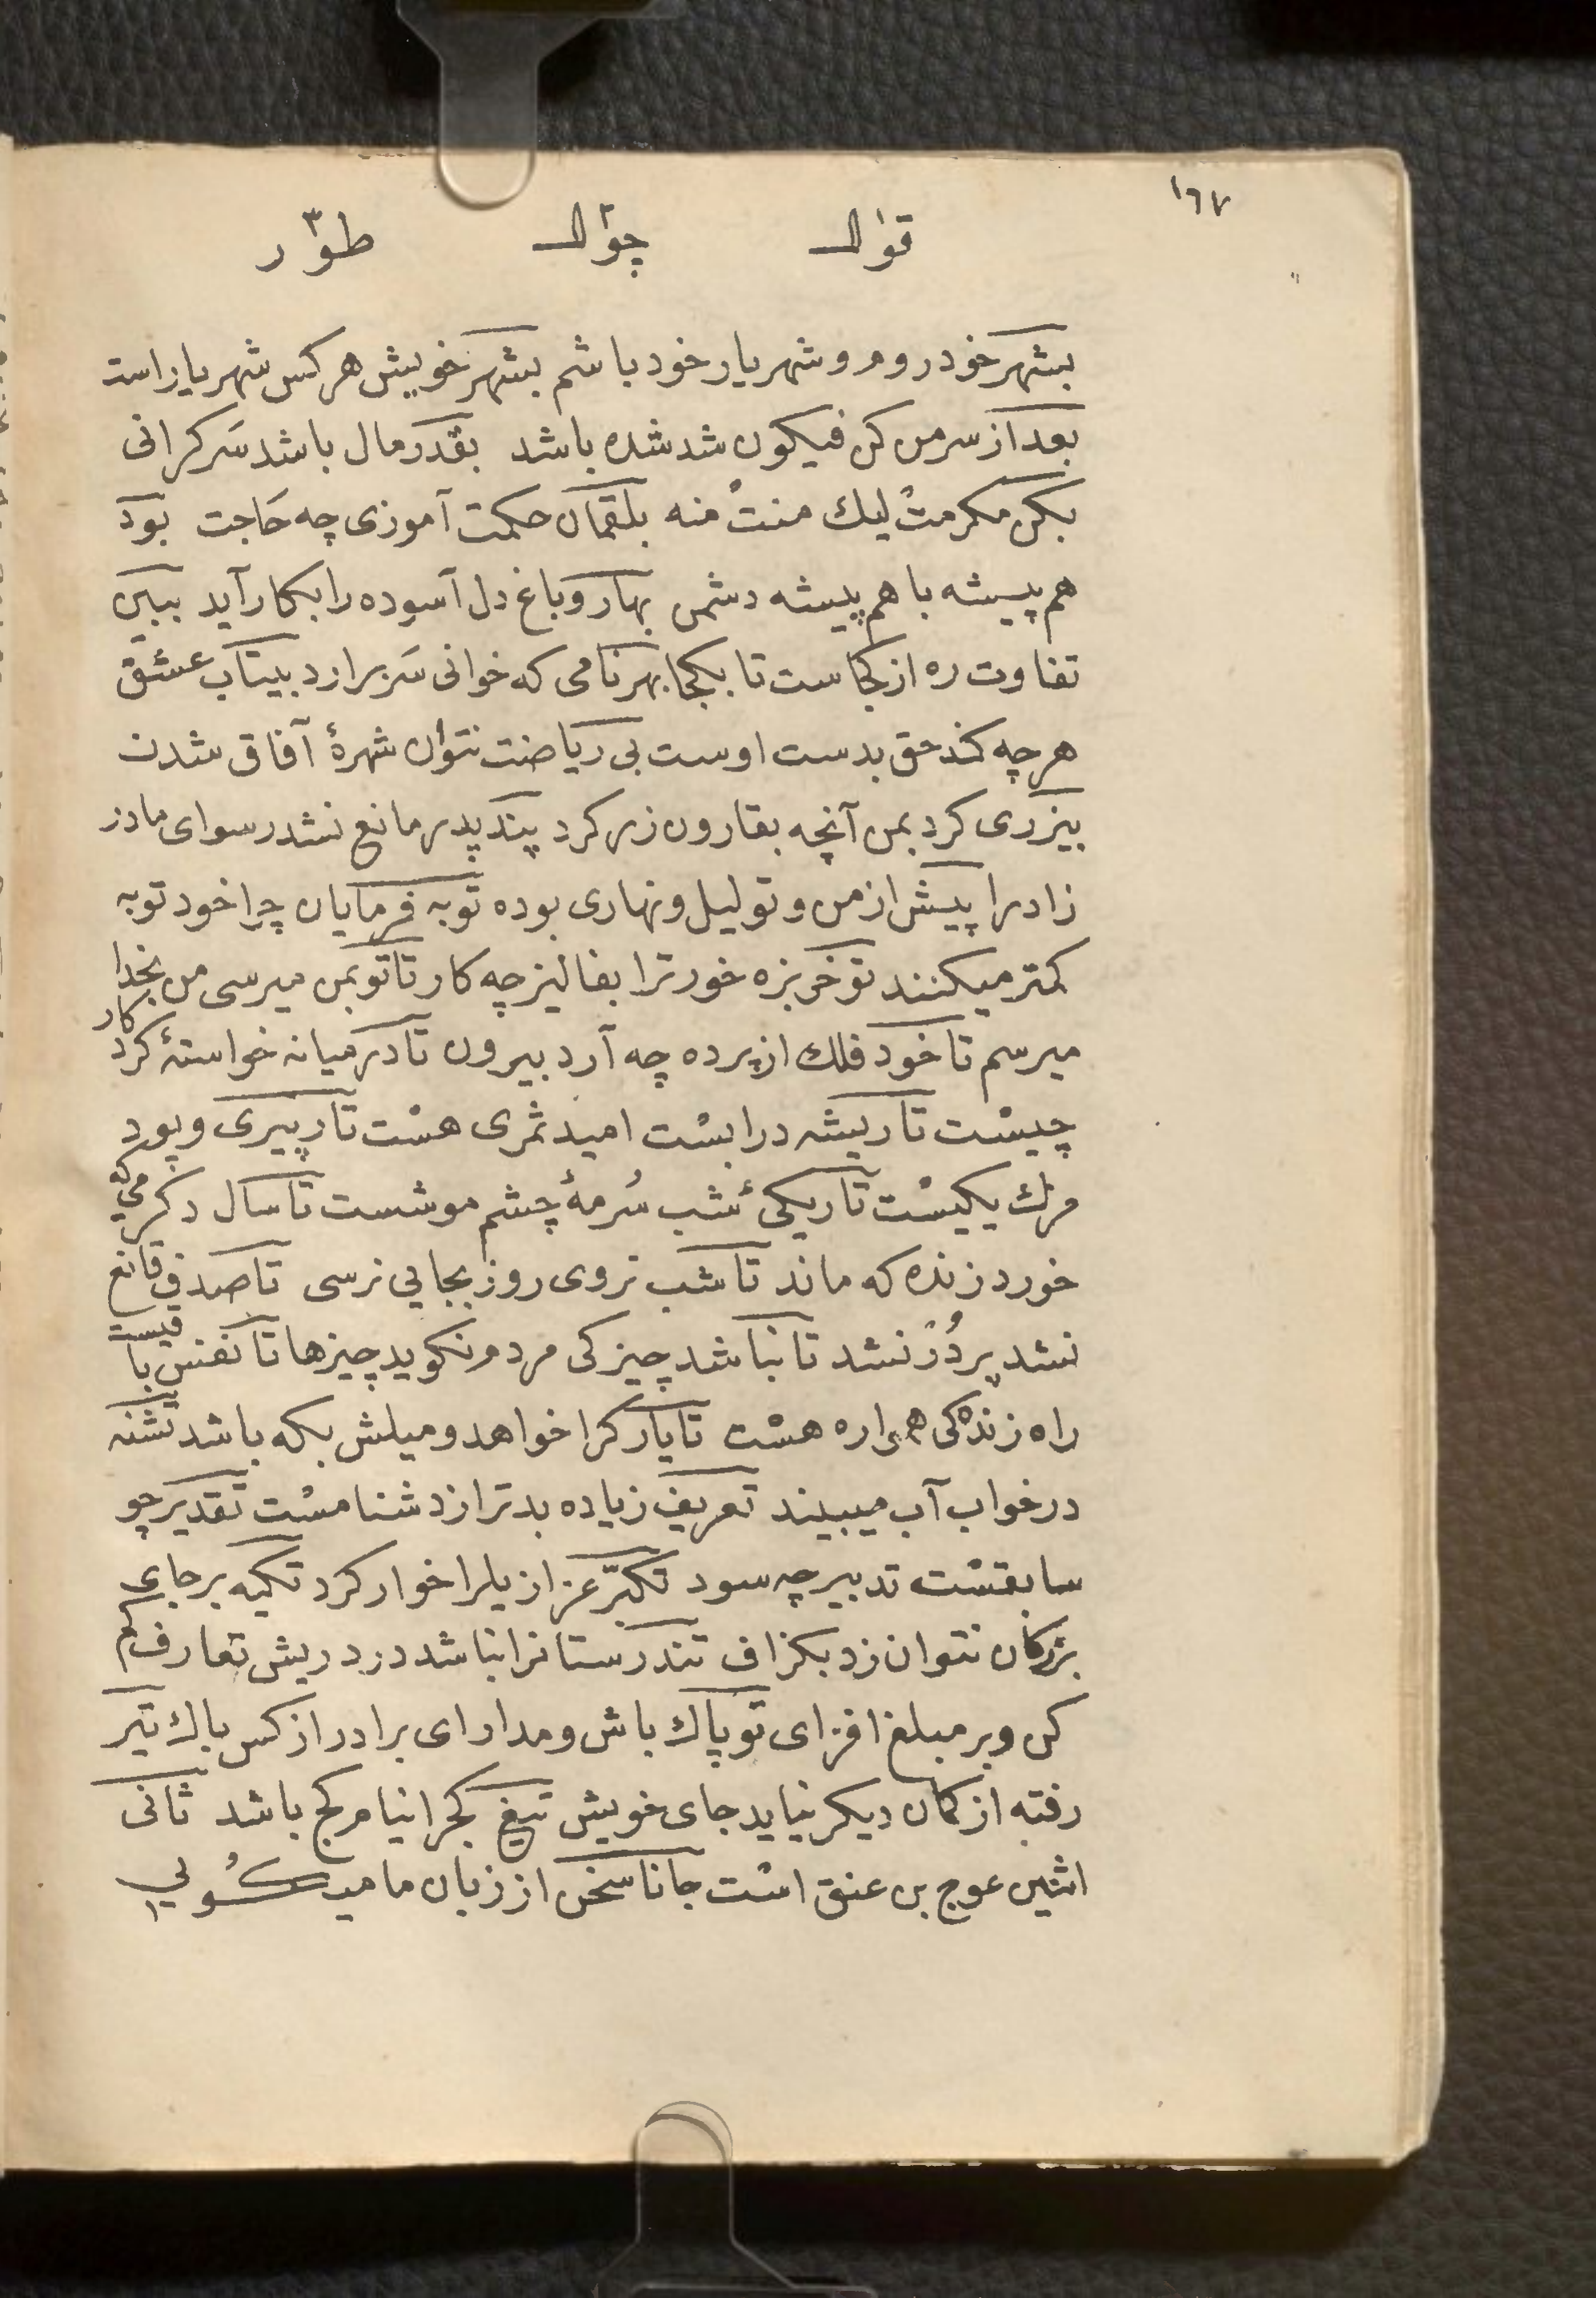 ١٦٧
قوال چوال طوار
بشهر خود روم و شهریار خود باشم بشهر خویش هر کس شهریار است
بعد از سر من کن فیکون شد شده باشد بقدر مال باشد سَرکرانی
بکن مکرمتْ لیك منتْ منه بلقمان حکمت آموزی چه حَاجت بود
هم پیشه با هم پیشه دشمن بهار و باغ دل آسوده را بکار آید ببین
تفاوت ره از کجاست تا بکجا بهر نامی که خوانی سَر برارد بیتاب عشق
هر چه کند حق بدست اوست بی ریاضت نتوان شهرهٔ آفاق شدن
بیزری کرد بمن آنچه بقارون زر کرد پند پدر مانع نشد رسوای مادر
زاد را پیش از من و تو لیل و نهاری بوده توبه فرمایان چرا خود توبه
کمتر میکنند تو خربزه خور ترا بفالیز چه کار تا تو بمن میرسی من بخدا
میرسم تا خود فلك از پرده چه آرد بیرون تا در میانه خواستهٔ کردکار
چیسْت تا ریشه در ابسْت امید ثمری هسْت تا رپیری و پود
مرك یکیسْت تاریکیٔ شب سُرمهٔ چشم موشست تا سال دکر می که
خورد زنده که ماند تا شب نروی روز بجایی نرسی تا صدف قانع
نشد پر دُرْ نشد تا نباشد چیزکی مردم نکوید چیزها تا نفس باقیست
راه زندکی همواره هسْت تا یار کرا خواهد و میلش بکه باشد تشنه
در خواب آب میبیند تعریف زیاده بدتر از دشنامسْت تقدیر چو
سابقسْت تدبیر چه سود تکبّر عزازیل را خوار کرد تکیه بر جای
بزرکان نتوان زد بکزاف تندرستانرا نباشد درد ریش تعارف کم
کن و بر مبلغ افزای تو پاك باش و مدار ای برادر از کس باك تیر
رفته از کمان دیکر نیاید جای خویش تیغ کجرا نیام کج باشد ثانی
اثنین عوج بن عنق اسْت جانا سخن از زبان ما میکُویی